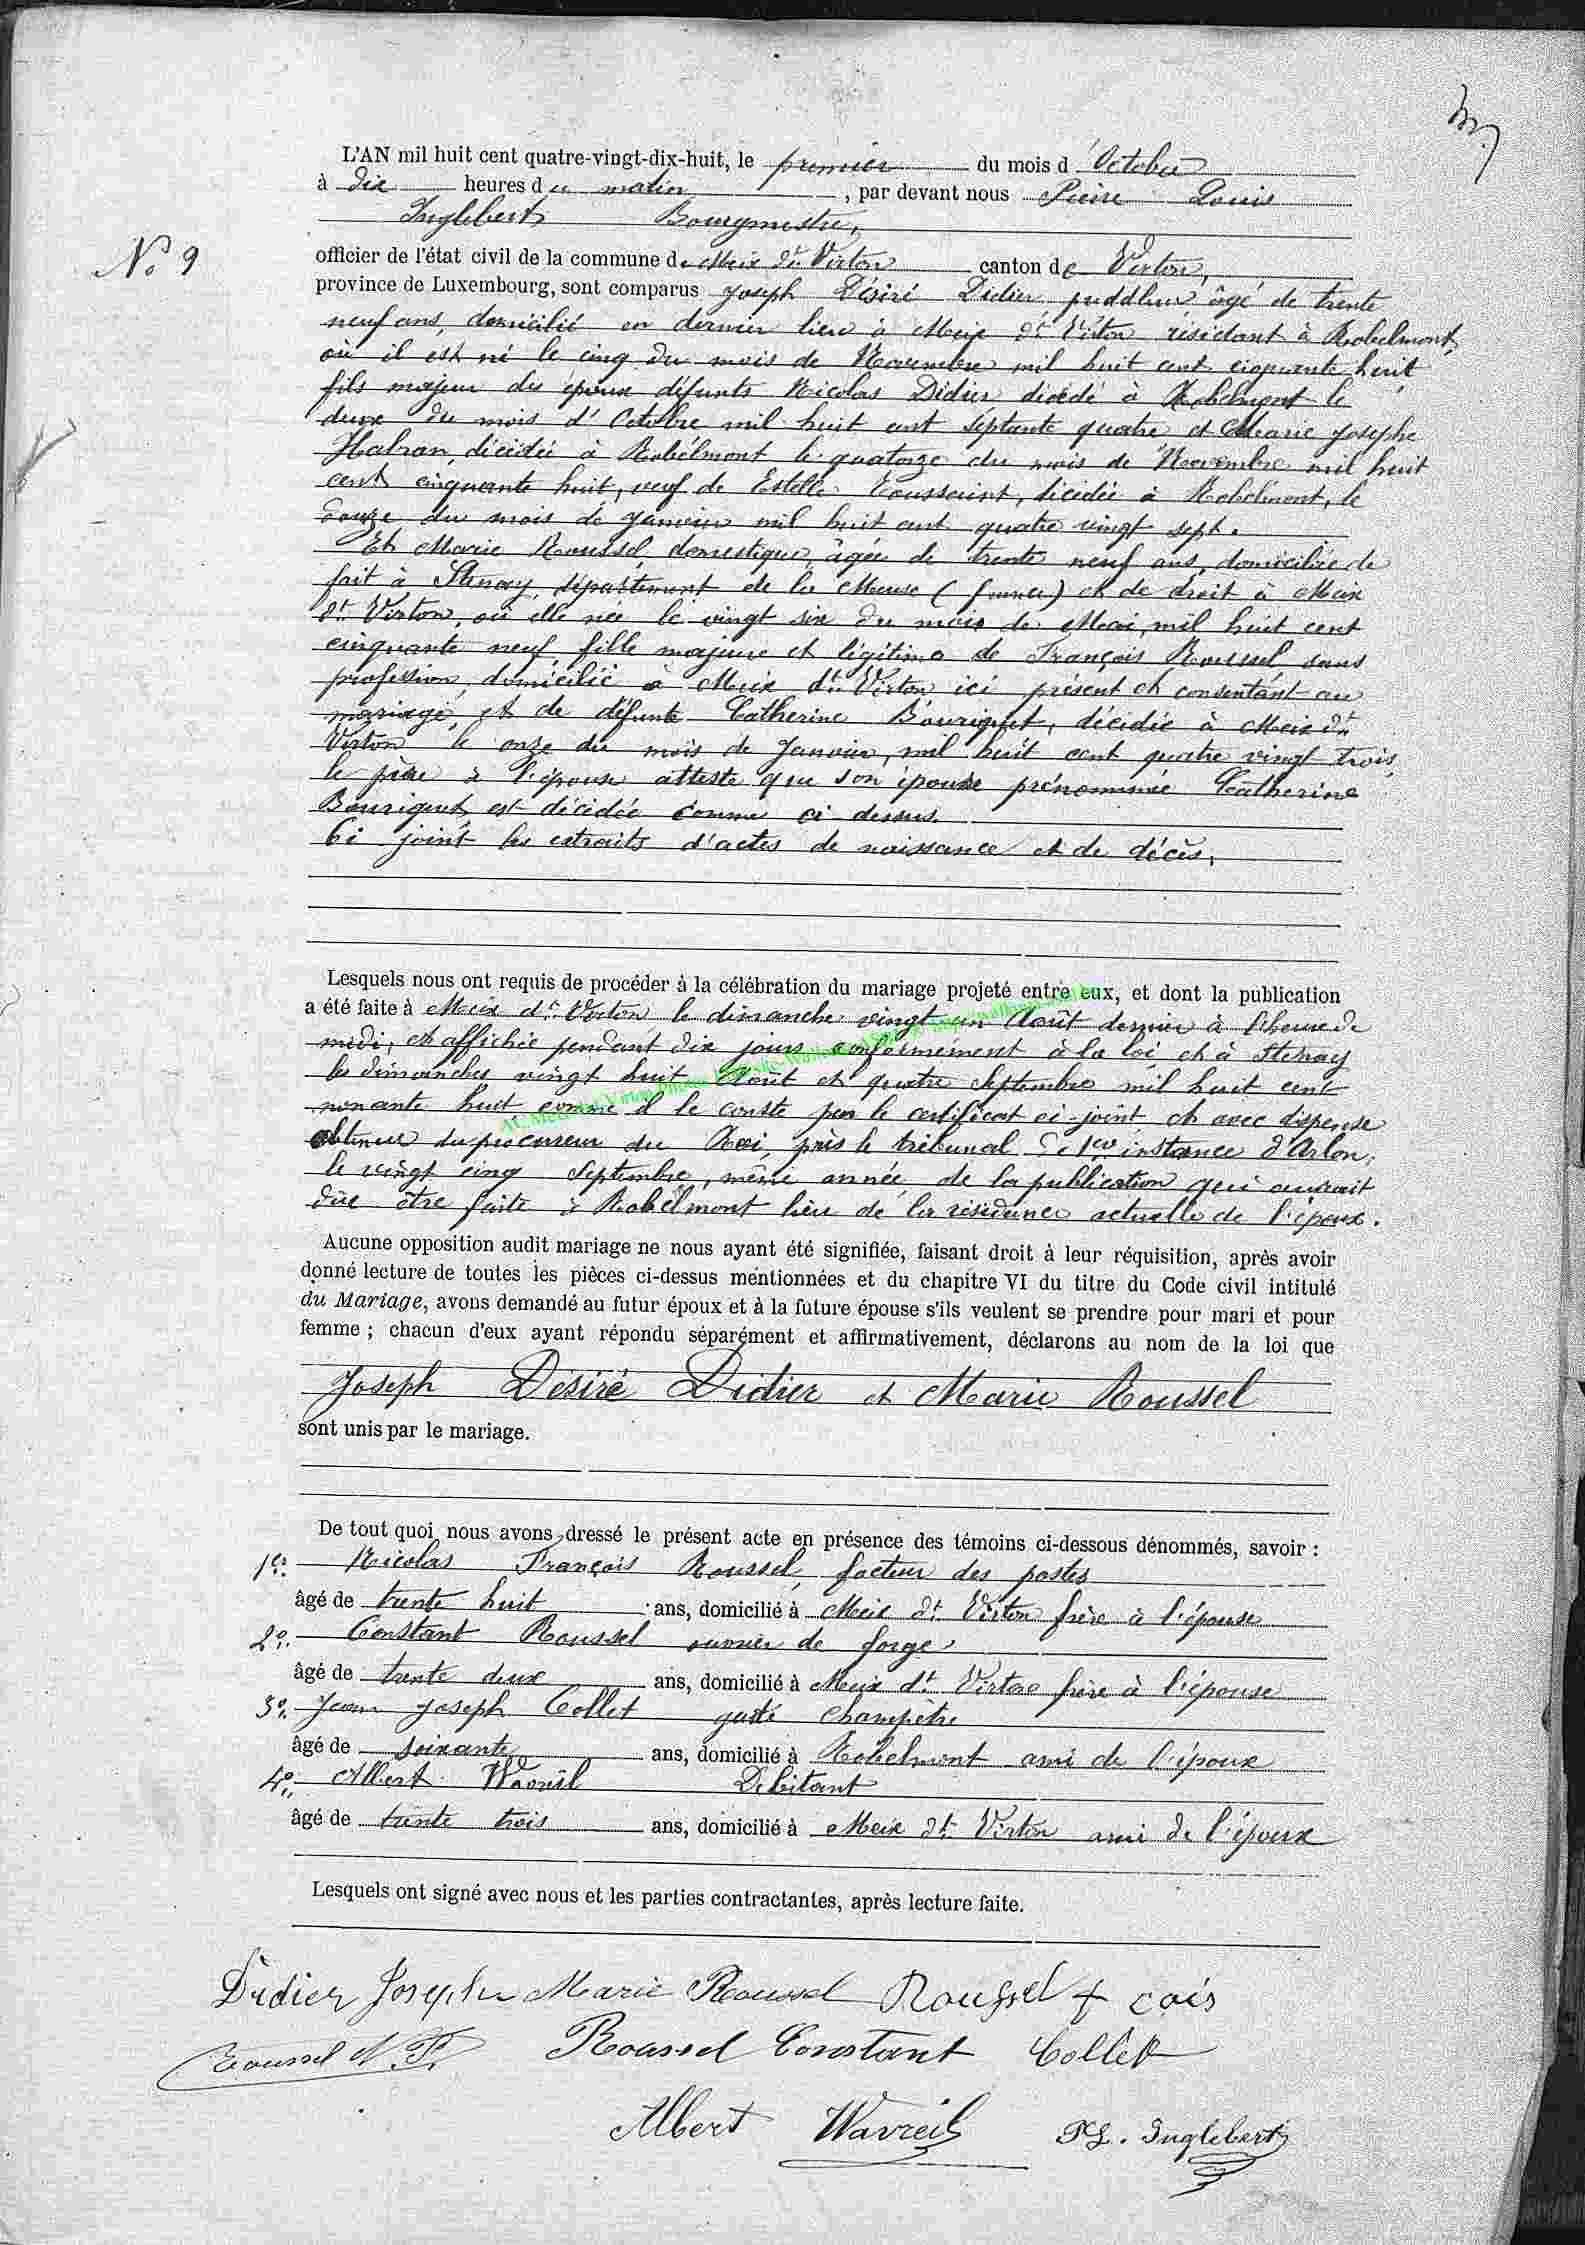 L'AN mil huit cent quatre-vingt-dix-huit, le premier du mois d'Octobre
à dix heures du matin, par devant nous Pierre Louis
Inglebert Bourgmestre,
N° 9
officier de l'état civil de la commune de Meix dt Virton canton de Virton,
province de Luxembourg, sont comparus Joseph Désiré Didier, puddleur âgé de trente
neuf ans, domicilié en dernier lieu à Meix dt Virton résidant à Robelmont,
où il est né le cinq du mois de Novembre mil huit cent cinquante huit,
fils majeur des époux défunts Nicolas Didier décédé à Robelmont le
deux du mois d'Octobre mil huit cent septante quatre et Marie Josephe
Habran, décédée à Robelmont le quatorze du mois de Novembre mil huit
cent cinquante huit, veuf de Estelle Toussaint, décédée à Robelmont, le
douze du mois de Janvier mil huit cent quatre vingt sept.
Et Marie Roussel, domestique, âgée de trente neuf ans, domiciliée de
fait à Stenay, département de la Meuse (france) et de droit à Meix
dt Virton, où elle née le vingt six du mois de Mai, mil huit cent
cinquante neuf fille majeure et légitime de François Roussel sans
profession, domicilié à Meix dt Virton ici présent et consentant au
mariage, et de défunte Catherine Bouriguet, décédée à Meix dt
Virton le onze du mois de Janvier, mil huit cent quatre vingt trois,
le père à l'épouse atteste que son épouse prénommée Catherine
Bouriguet, est décédée comme ci dessus.
Ci joint les extraits d'actes de naissance et de décès.
Lesquels nous ont requis de procéder à la célébration du mariage projeté entre eux, et dont la publication
a été faite à Meix dt Virton, le dimanche vingt un Août dernier à l'heure de
midi, et affichée pendant dix jours conformément à la loi et à Stenay
les dimanches vingt huit Août et quatre Septembre mil huit cent
nonante huit, comme il le conste par le certificat ci-joint et avec dispense
obtenue du procureur du Roi, près le tribunal de 1ere instance d'Arlon,
le vingt cinq Septembre, même année, de la publication qui aurait
due être faite à Robelmont lieu de la résidence actuelle de l'époux.
Aucune opposition audit mariage ne nous ayant été signifiée, faisant droit à leur réquisition, après avoir
donné lecture de toutes les pièces ci-dessus mentionnées et du chapitre VI du titre du Code civil intitulé
du Mariage, avons demandé au futur époux et à la future épouse s'ils veulent se prendre pour mari et pour
femme ; chacun d'eux ayant répondu séparément et affirmativement, déclarons au nom de la loi que
Joseph Désiré Didier et Marie Roussel
sont unis par le mariage.
De tout quoi nous avons dressé le présent acte en présence des témoins ci-dessous dénommés, savoir :
1er. Nicolas François Roussel, facteur des postes
âgé de trente huit ans, domicilié à Meix dt Virton frère à l'épouse
2o. Constant Roussel ouvrier de forge
âgé de trente deux ans, domicilié à Meix dt Virton frère à l'épouse
3o. Jean Joseph Collet garde champêtre
âgé de soixante ans, domicilié à Robelmont ami de l'époux
4o. Albert Wavreil Debitant
âgé de trente trois ans, domicilié à Meix dt Virton ami de l'époux
Lesquels ont signé avec nous et les parties contractantes, après lecture faite.
Didier Joseph Marie Roussel Roussel f cois
Roussel N. F. Roussel Constant Collet
Albert Wavreil PL. Inglebert